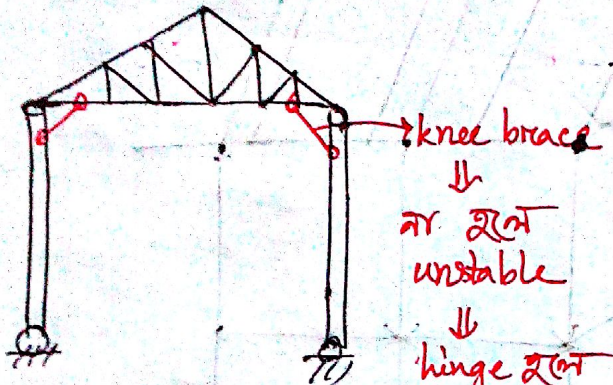 knee brace
⇓
না হলে
unstable
⇓
hinge হলে